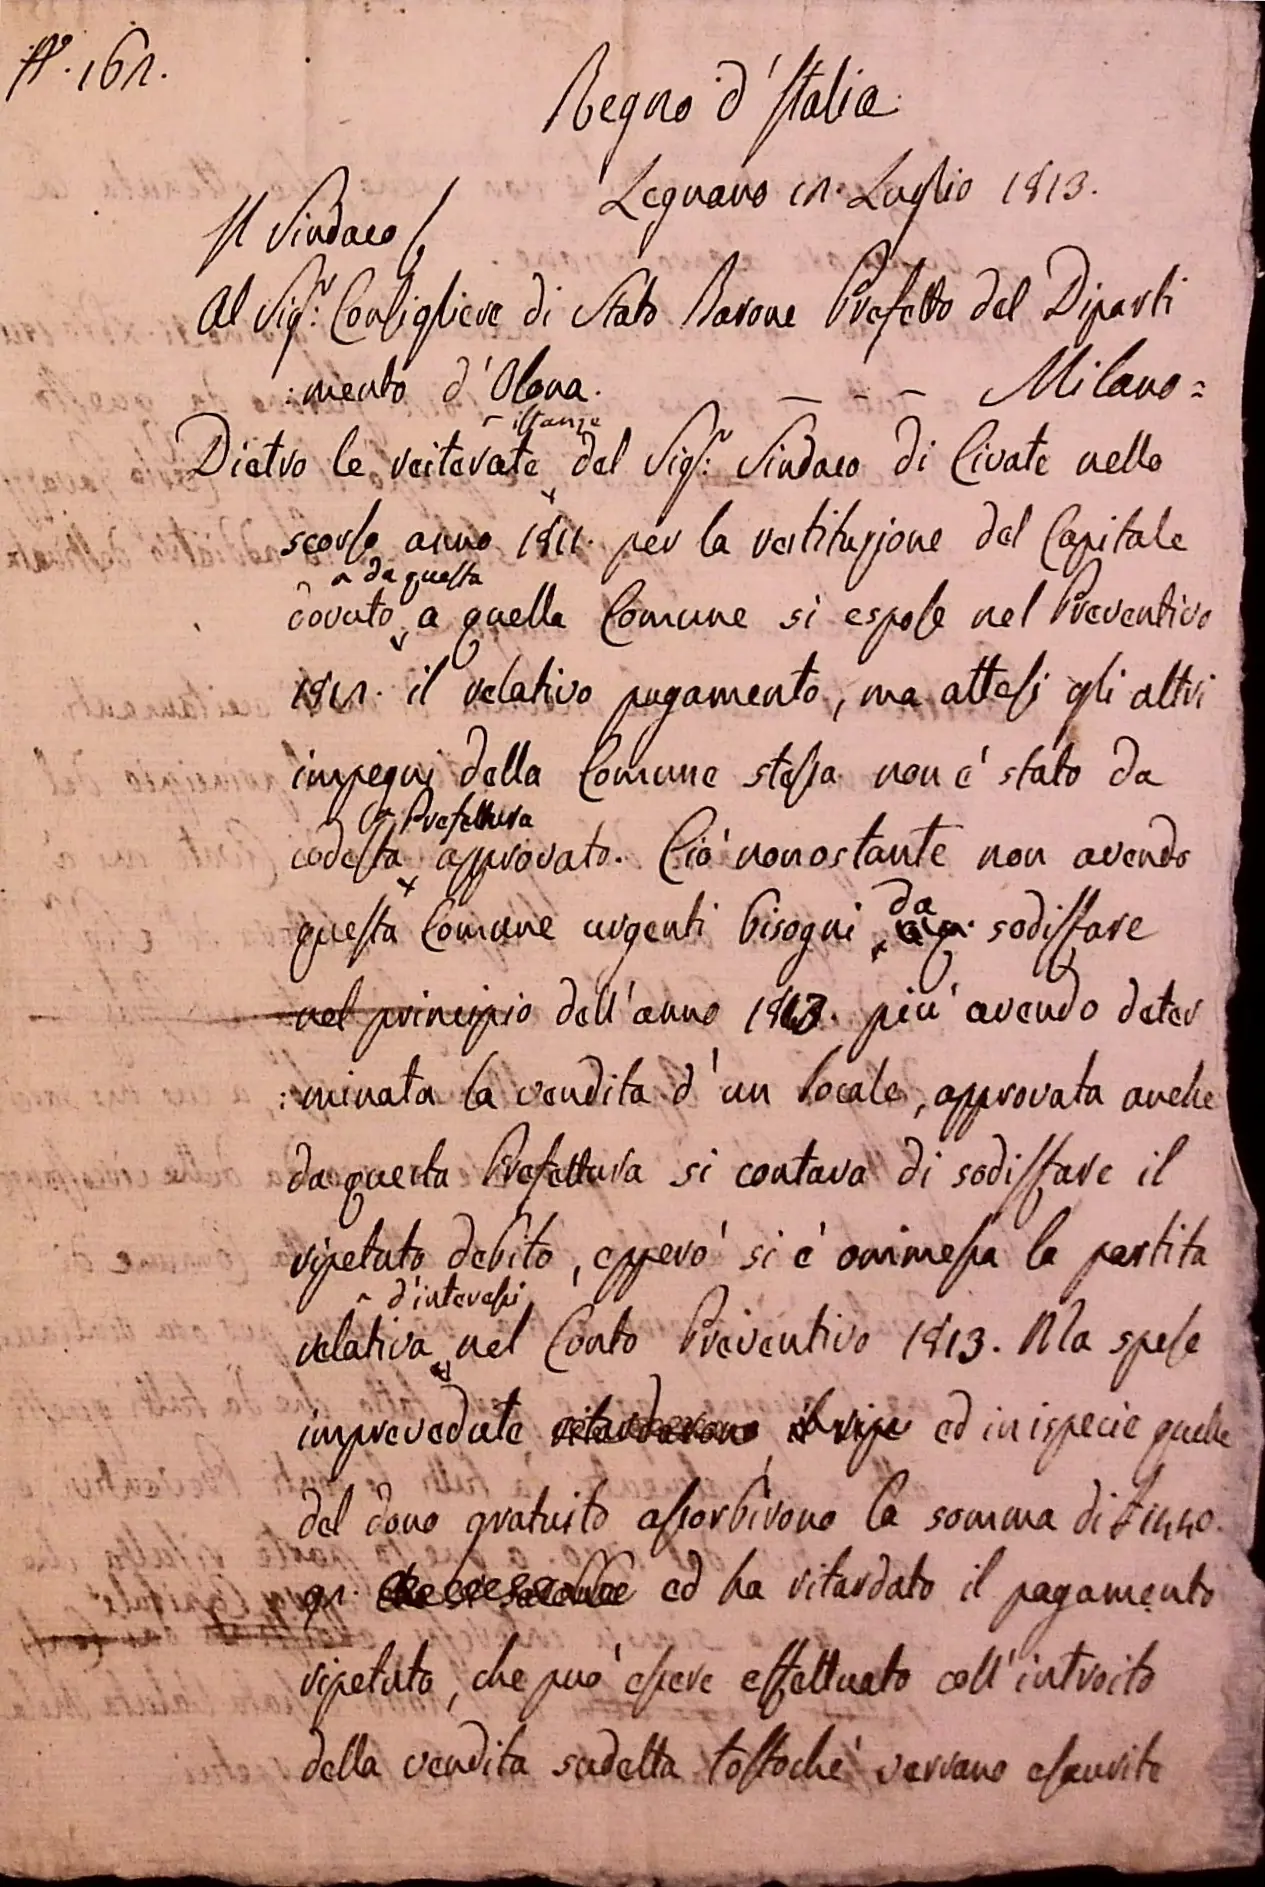 N°. 162.
Regno d'Italia
Legnano 12. Luglio 1813.
Il Sindaco
Al Sig.r Consigliere di Stato Barone Prefetto del Diparti
:mento d'Olona. _ _ _ Milano =
istanze
Dietro le reiterate del Sig.r Sindaco di Civate nello
scorso anno 1811. per la restituzione del Capitale
da questa
dovuto a quella Comune si espose nel Preventivo
1812. il relativo pagamento, ma attesi gli altri
impegni della Comune stessa non è stato da
Prefettura
codesta approvato. Ciò nonostante non avendo
da
questa Comune urgenti bisogni sodisfare
nel principio dell'anno 1813. più avendo deter
:minata la vendita d'un locale, approvata anche
da questa Prefettura si contava di sodisfare il
ripetuto debito, epperò si è ommessa la partita
d'interessi
relativa nel Conto Preventivo 1813. Ma spese
imprevedute ritarderono il ripe ed inispecie quelle
del dono gratuito assorbirono la somma di
ed ha ritardato il pagamento
ripetuto, che può essere effettuato coll'introito
della vendita sudetta tostochè verrano esaurite